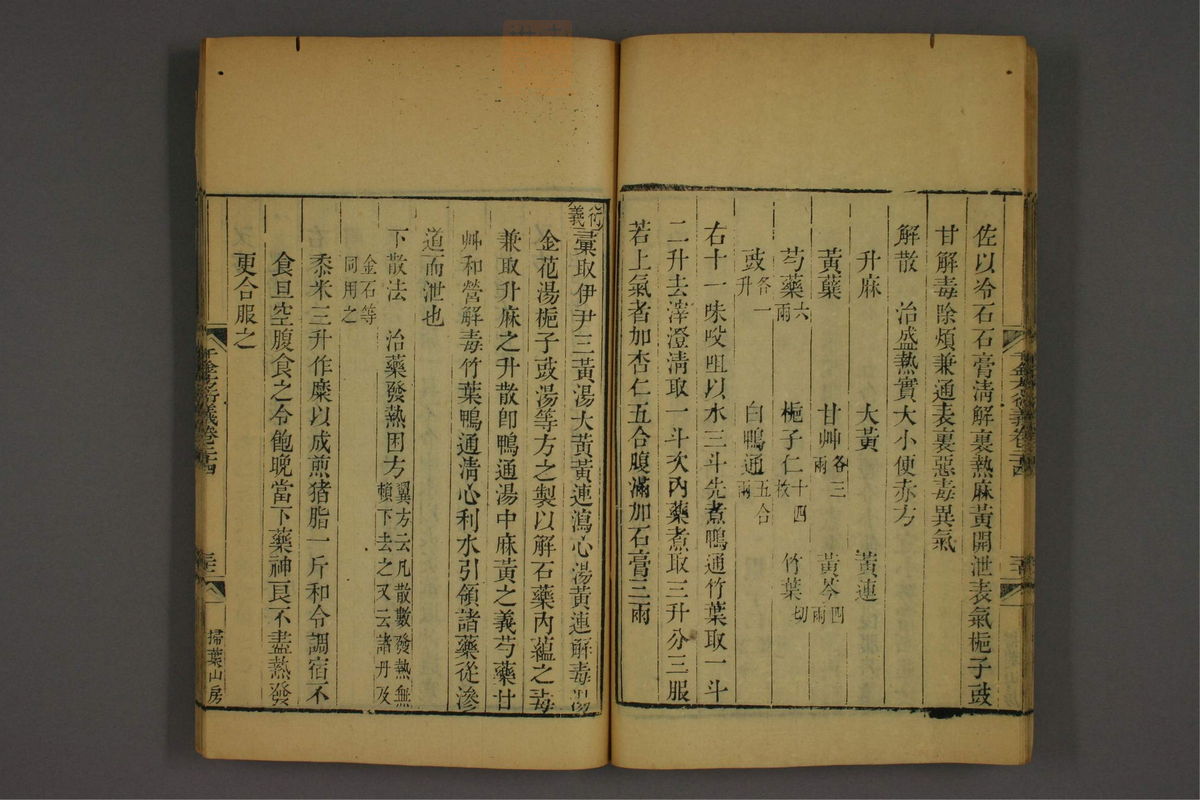 佐以冷石石膏清解裏熱麻黃開泄表氣梔子豉
甘解毒除煩兼通表裏惡毒異氣
解散　治盛熱實大小便赤方
升麻　大黃　黃連
黃蘗　甘艸各三兩　黃芩四兩
芍藥六兩　梔子仁十四枚　竹葉切
豉各一升　白鴨通五合
右十一味㕮咀以水三斗先煮鴨通竹葉取一斗
二升去滓澄清取一斗次內藥煮取三升分三服
若上氣者加杏仁五合腹滿加石膏三兩
衍義彙取伊尹三黃湯大黃黃連瀉心湯黃連解毒湯
金花湯梔子豉湯等方之製以解石藥內蘊之毒
兼取升麻之升散卽鴨通湯中麻黃之義芍藥甘
艸和營解毒竹葉鴨通清心利水引領諸藥從滲
道而泄也
下散法　治藥發熱困方翼方云凡散數發熱無
賴下去之又云諸丹及
金石等
同用之
黍米三升作糜以成煎猪脂一斤和令調宿不
食旦空腹食之令飽晚當下藥神良不盡熱發
更合服之
千金方衍義卷二十四
掃葉山房